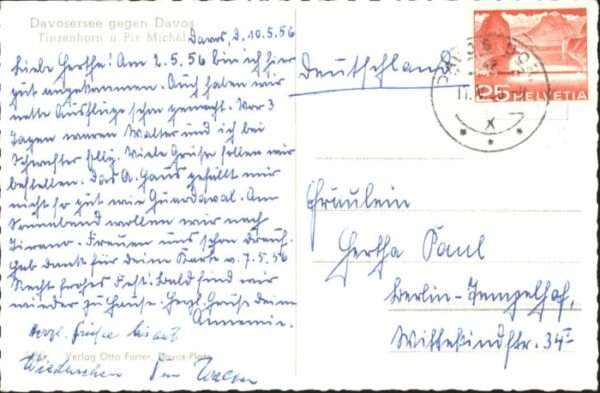 Davosersee gegen Davos
Tinzenhorn u. Piz Michel
Davos, d. 10.5.56
Liebe Hertha! Am 2.5.56 bin ich hier
gut angekommen. Auch haben wir
nette Ausflüge schon gemacht. Vor 3
Tagen waren Walter und ich bei
Viele Grüße sollen wir
bestellen. Das A. Haus gefällt mir
nicht so gut wie Guardaval. Am
Sonnabend wollen wir nach
Tirano. Freuen uns schon drauf.
Hab Dank für deine Karte v. 7.5.56
Recht frohes Fest. Bald sind wir
wieder zu Hause. Herzl. Grüße deine
Annemie.
Herzl. Grüße bis auf
Wiedersehen Dein Walter
Verlag Otto Furter, Davos-Platz
Deutschland
25 HELVETIA
DAVOS DORF
X
Fräulein
Hertha Paul
Berlin-Tempelhof,
Wittekindstr. 34 I